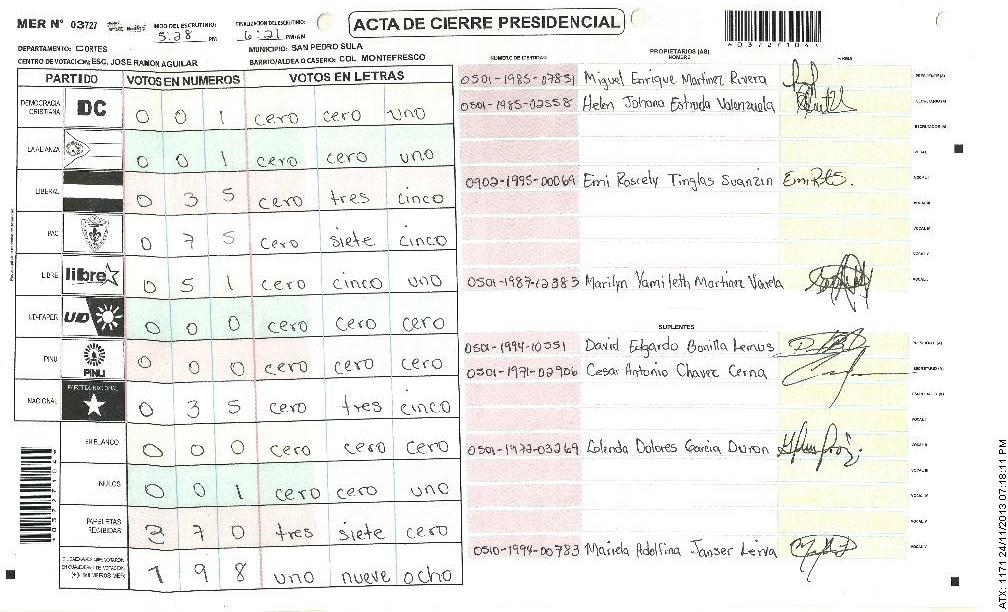 MER Nº 03727
INICIO DEL ESCRUTINIO: 5:28 PM
FINALIZACION DEL ESCRUTINIO: 6:21 PM/AM
ACTA DE CIERRE PRESIDENCIAL
4037271044
DEPARTAMENTO: CORTES
MUNICIPIO: SAN PEDRO SULA
CENTRO DE VOTACION: ESC. JOSE RAMON AGUILAR
BARRIO/ALDEA O CASERIO: COL. MONTEFRESCO
PARTIDO VOTOS EN NUMEROS VOTOS EN LETRAS
DEMOCRACIA CRISTIANA DC 0 0 1 cero cero uno
LA ALIANZA 0 0 1 cero cero uno
LIBERAL 0 3 5 cero tres cinco
PAC 0 7 5 cero siete cinco
LIBRE libre 0 5 1 cero cinco uno
UD-FAPER UD 0 0 0 cero cero cero
PINU PINU 0 0 0 cero cero cero
NACIONAL PARTIDO NACIONAL 0 3 5 cero tres cinco
EN BLANCO 0 0 0 cero cero cero
NULOS 0 0 1 cero cero uno
PAPELETAS RECIBIDAS 3 7 0 tres siete cero
1 9 8 uno nueve ocho
PROPIETARIOS (AS)
NUMERO DE IDENTIDAD NOMBRE FIRMA
0501-1985-07851 Miguel Enrique Martinez Rivera PRESIDENTE (A)
0501-1985-02558 Helen Johana Estrada Valenzuela SECRETARIO (A)
ESCRUTADOR (A)
VOCAL I
0902-1995-00069 Emi Roscely Tinglas Suanzin VOCAL II
VOCAL III
VOCAL IV
VOCAL V
0501-1987-12383 Marilyn Yamileth Martinez Varela
SUPLENTES
0501-1994-10351 David Edgardo Bonilla Lemus PRESIDENTE (A)
0501-1971-02906 Cesar Antonio Chavez Cerna SECRETARIO (A)
ESCRUTADOR (A)
VOCAL I
0501-1972-03269 Lolenda Dolores Garcia Duron VOCAL II
VOCAL III
VOCAL IV
VOCAL V
0510-1994-00783 Mariela Adolfina Janser Leiva
4037271044
ATX: 1171 24/11/2013 07:18:11 PM